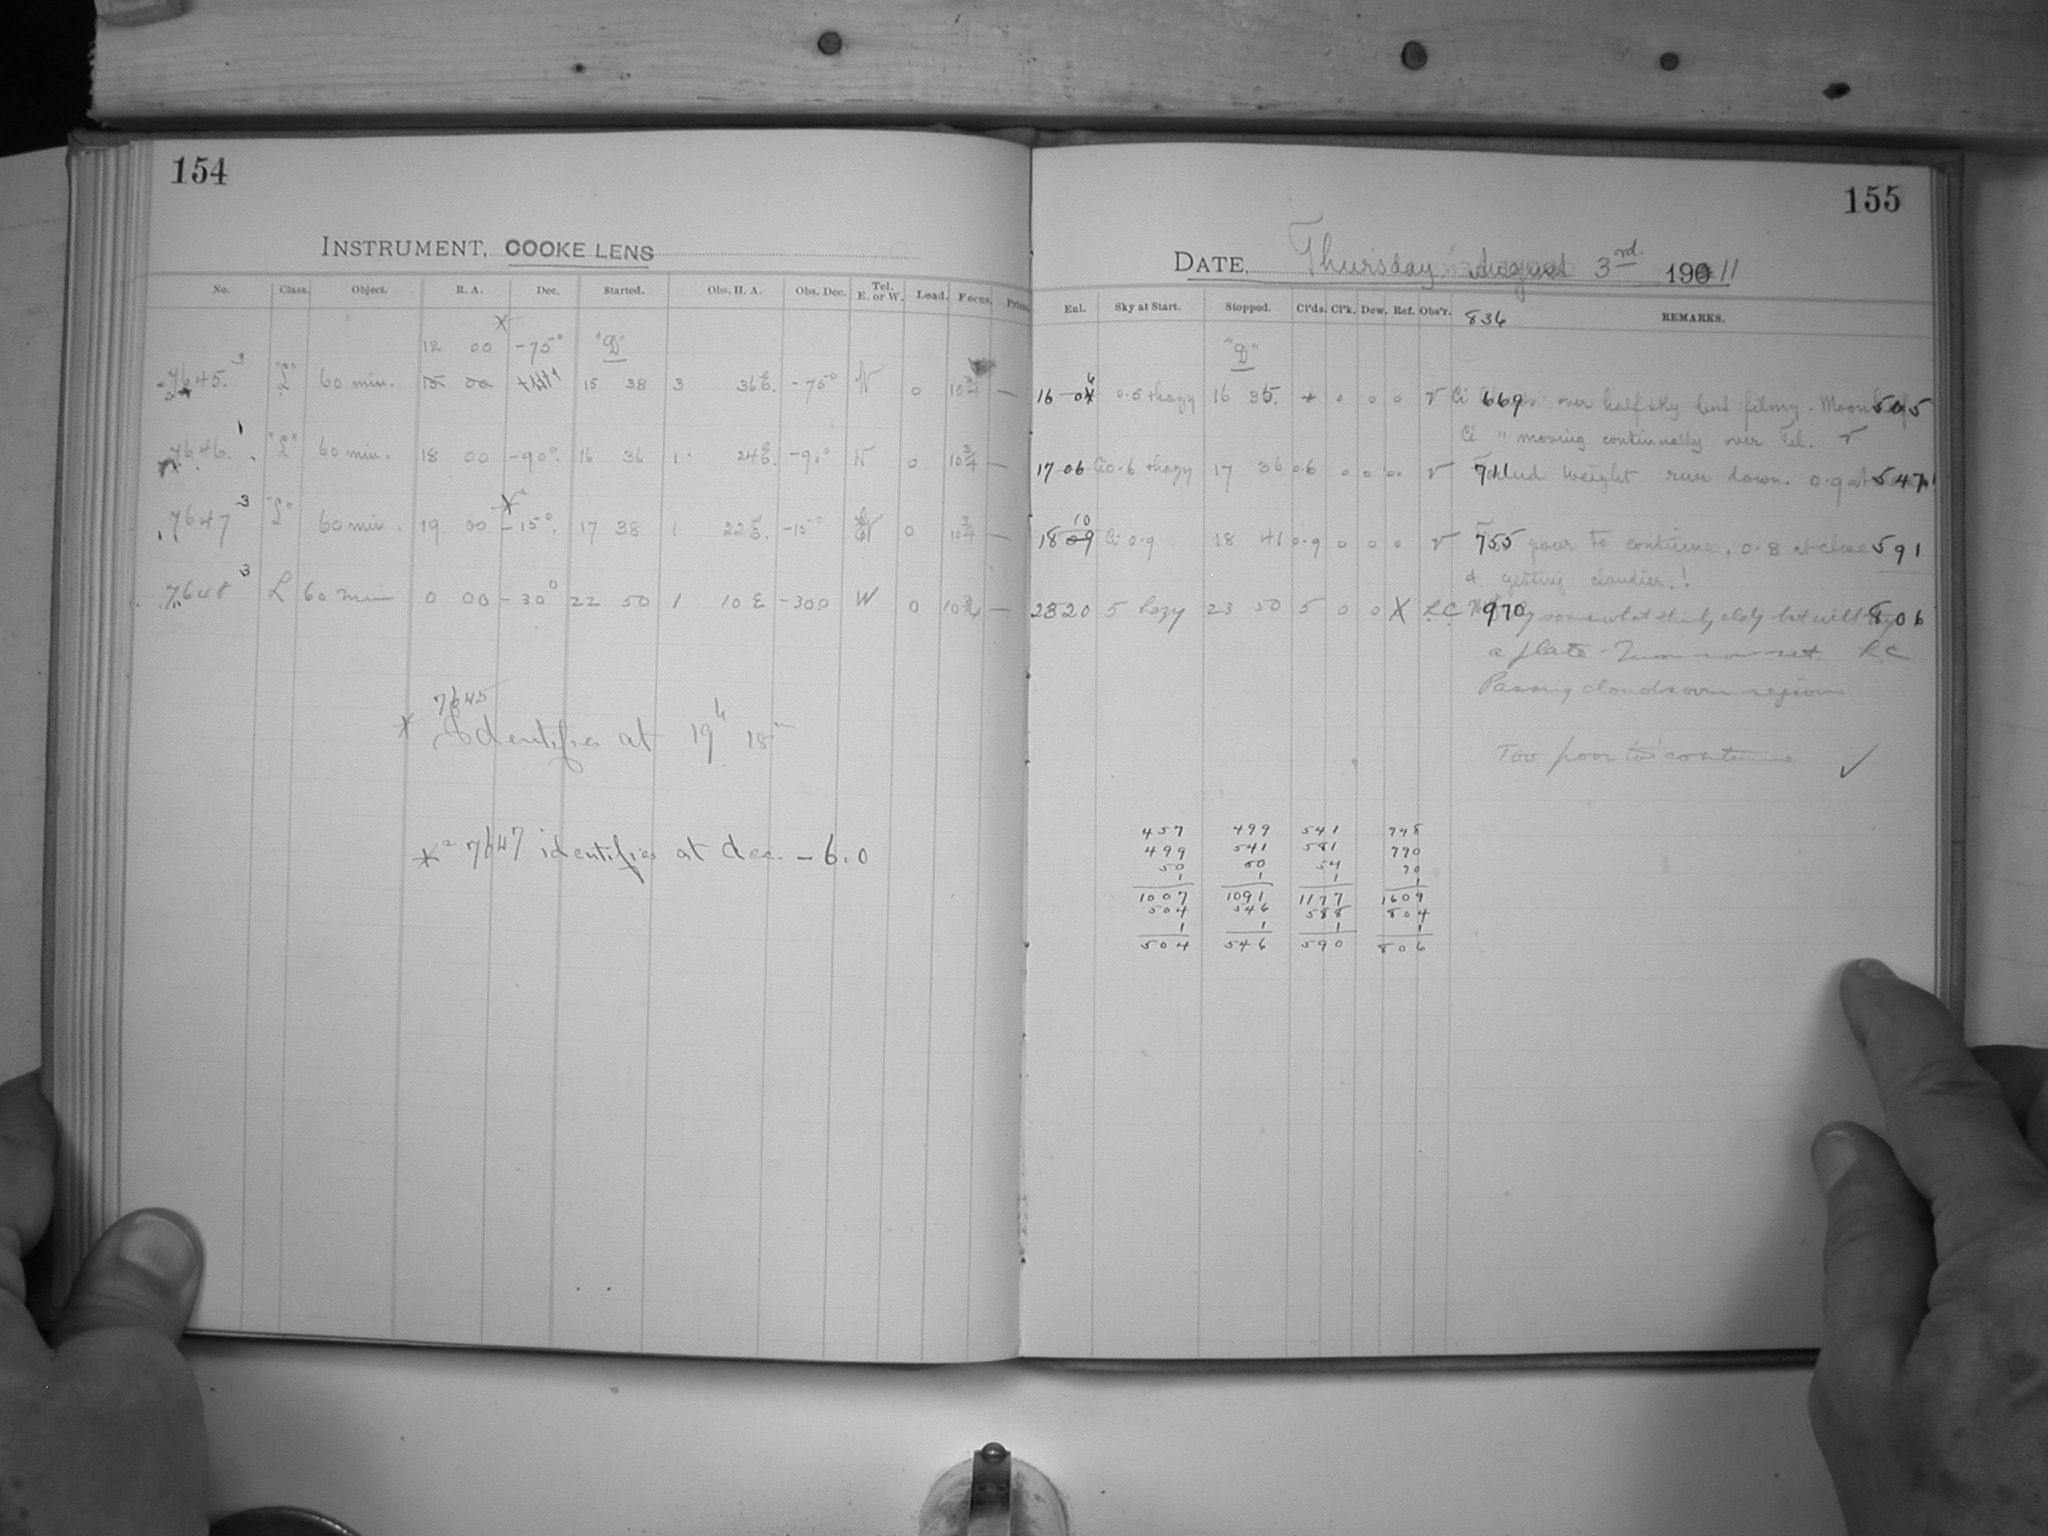 154
INSTRUMENT, COOKE LENS
No. Class. Object. R. A. Dec. Started. Obs. H. A. Obs. Dec. Tel. E. or W. Load. Focus. Prism
*
12 00 -75° "D"
7645. 3 "L" 60 min. 15 38 3 36 E. -75° W 0 10 3/4 —
7646. 1 "L" 60 min. 18 00 -90°. 16 36 1 24 E. -90° W 0 10 3/4 —
*a
7647 3 "L" 60 min. 19 00 -15°. 17 38 1 22 E. -15° W 0 10 3/4 —
7648 3 L 60 min 0 00 -30° 22 50 1 10 E -300 W 0 10 3/4 —
7645
* Identifies at 19h 18m
*a 7647 identifies at dec. -6.0
155
DATE, Thursday August 3rd 190 11
Enl. Sky at Start. Stopped. Cl'ds. Cl'k. Dew. Ref. Obs'r. 836 REMARKS.
"D"
16 0 6 0.5 + hazy 16 35. * 0 0 0 V Ci 669 over half sky but filmy. Moon 505
Ci " moving continually over Tel. V
17 06 Ci 0.6 + hazy 17 36 0.6 0 0 0 V 711 weight run down. 0.9 at 547
10
18 09 Ci 0.9 18 41 0.9 0 0 0 V 755 poor to continue, 0.8 at close 591
& getting cloudier.!
23 20 5 hazy 23 50 5 0 0 X L.C 970 somewhat thinly cldy but will try 806
a plate - Moon now set. L.C.
Passing clouds over region
Too poor to continue ✓
457 499 541 748
499 541 581 790
50 50 54 70
1 1 1 1
1007 1091 1177 1609
504 546 588 804
1 1 1 1
504 546 590 806